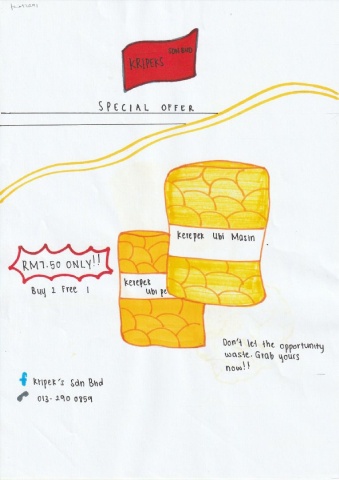 SDN BHD
KRIPEKS
SPECIAL OFFER
Kerepek Ubi Masin
RM7.50 ONLY!!
Buy 2 Free 1
Kerepek
Ubi pe
Don't let the opportunity
waste. Grab yours
now!!
Kripek's Sdn Bhd
013-290 0859